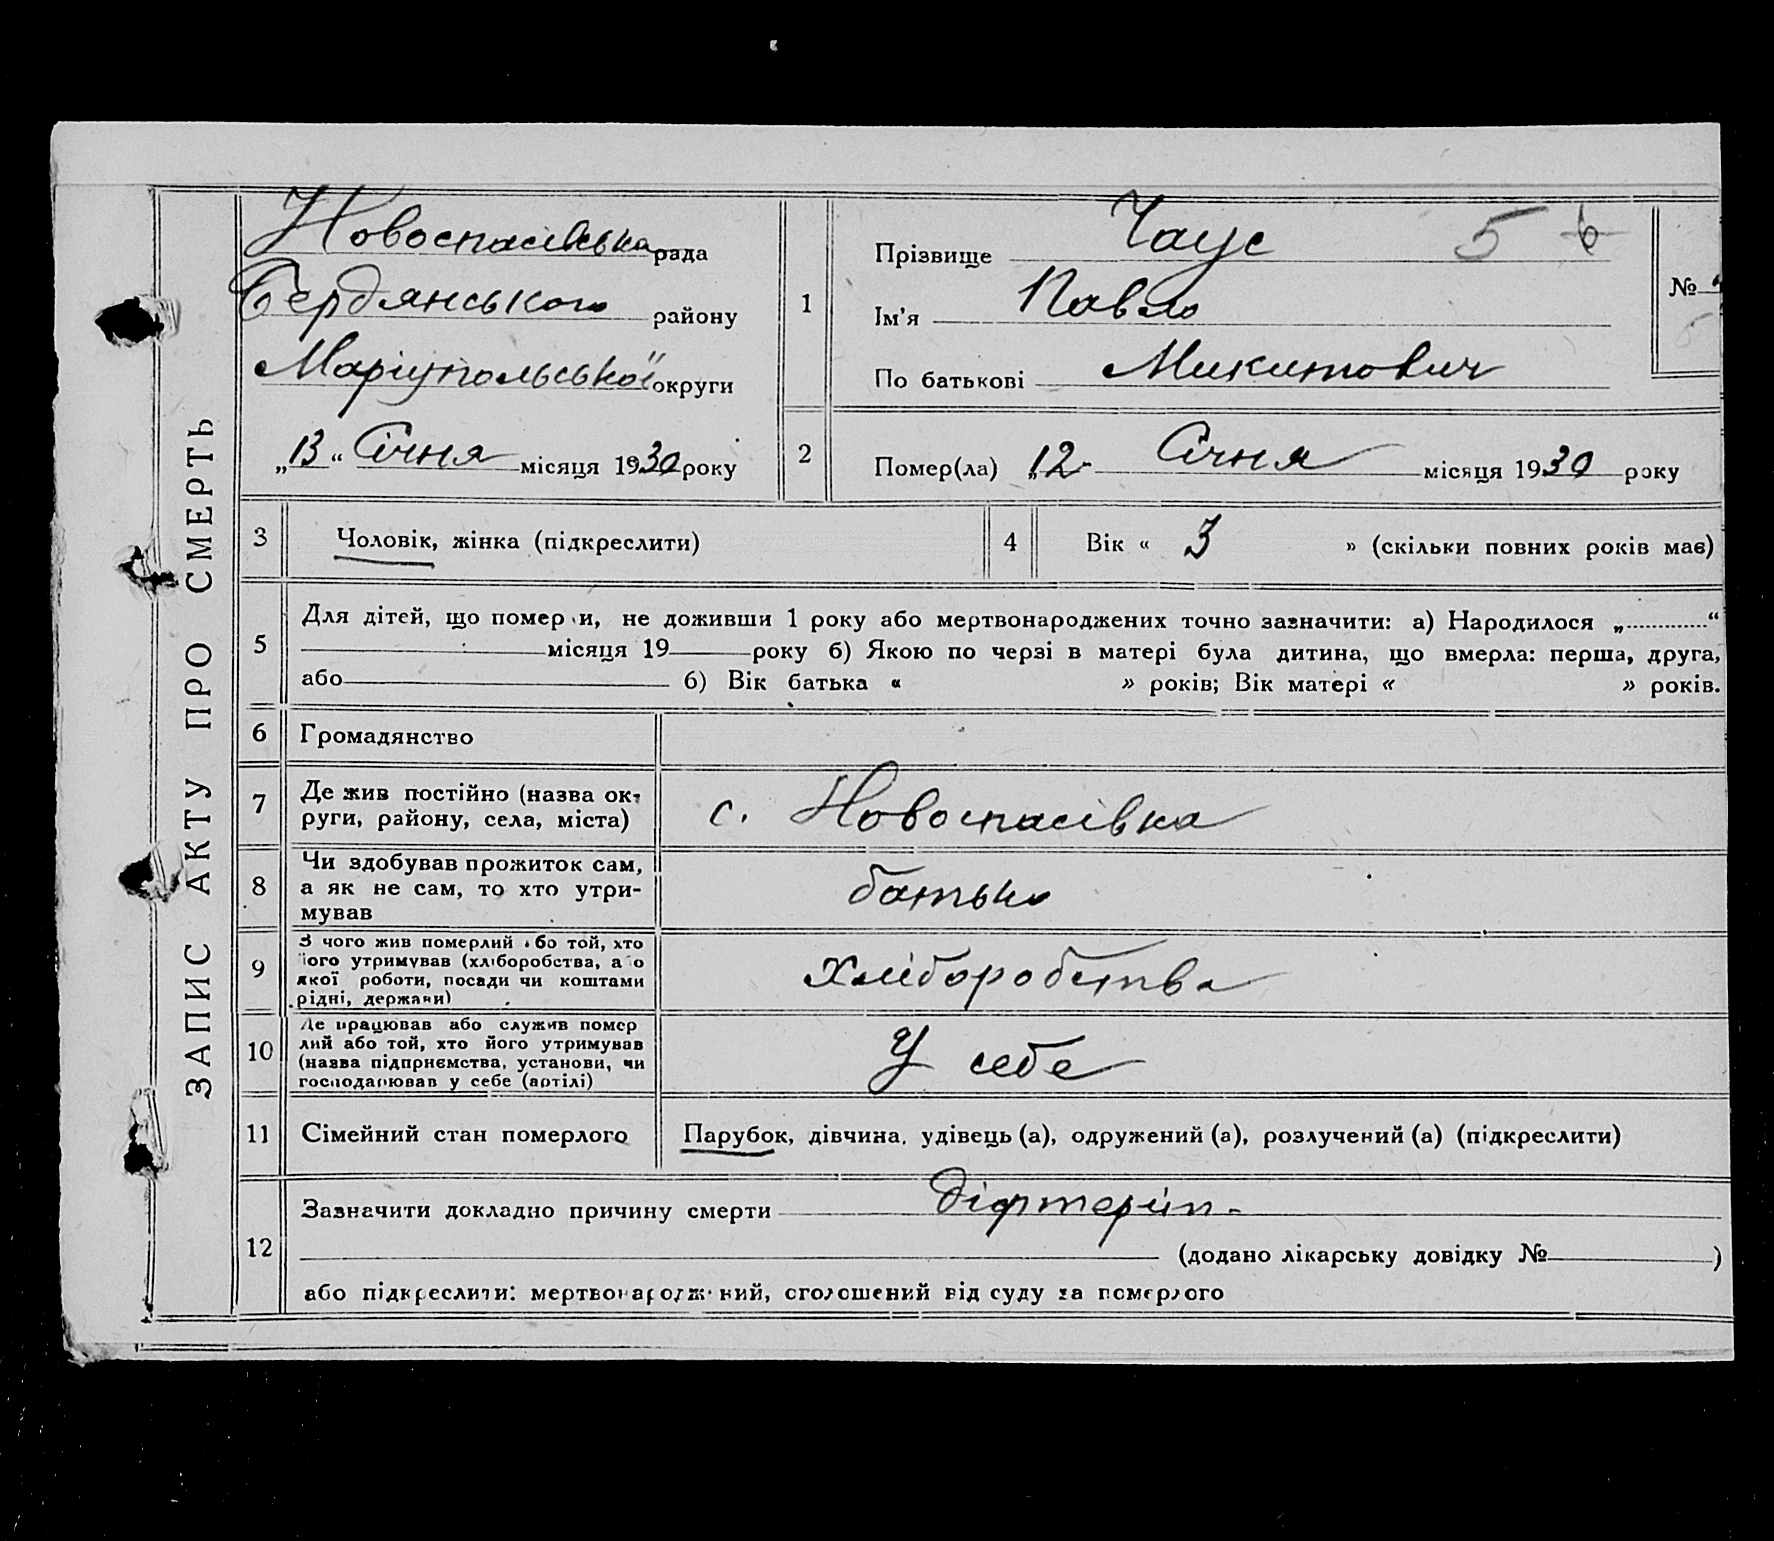 ЗАПИС АКТУ ПРО СМЕРТЬ
Новоспасівська рада
Бердянського району
Маріупольської округи
„13“ Січня місяця 1930 року
1
Прізвище Чаус 5 6
Ім'я Павло
По батькові Микитович
№
2
Помер(ла) „12 Січня місяця 1930 року
3 Чоловік, жінка (підкреслити)
4 Вік « 3 » (скільки повних років має)
5
Для дітей, що помер и, не доживши 1 року або мертвонароджених точно зазначити: а) Народилося „ “
місяця 19 року б) Якою по черзі в матері була дитина, що вмерла: перша, друга,
або б) Вік батька « » років; Вік матері « » років.
6 Громадянство
7
Де жив постійно (назва ок-
руги, району, села, міста)
с. Новоспасівка
8
Чи здобував прожиток сам,
а як не сам, то хто утри-
мував
батько
9
З чого жив померлий або той, хто
його утримував (хліборобства, або
якої роботи, посади чи коштами
рідні, держави)
Хліборобства
10
Де працював або служив помер
лий або той, хто його утримував
(назва підприємства, установи, чи
господарював у себе (артілі)
У себе
11 Сімейний стан померлого
Парубок, дівчина, удівець (а), одружений (а), розлучений (а) (підкреслити)
12
Зазначити докладно причину смерти діфтеріт
(додано лікарську довідку № )
або підкреслити: мертвонароджений, оголошений від суду за померлого